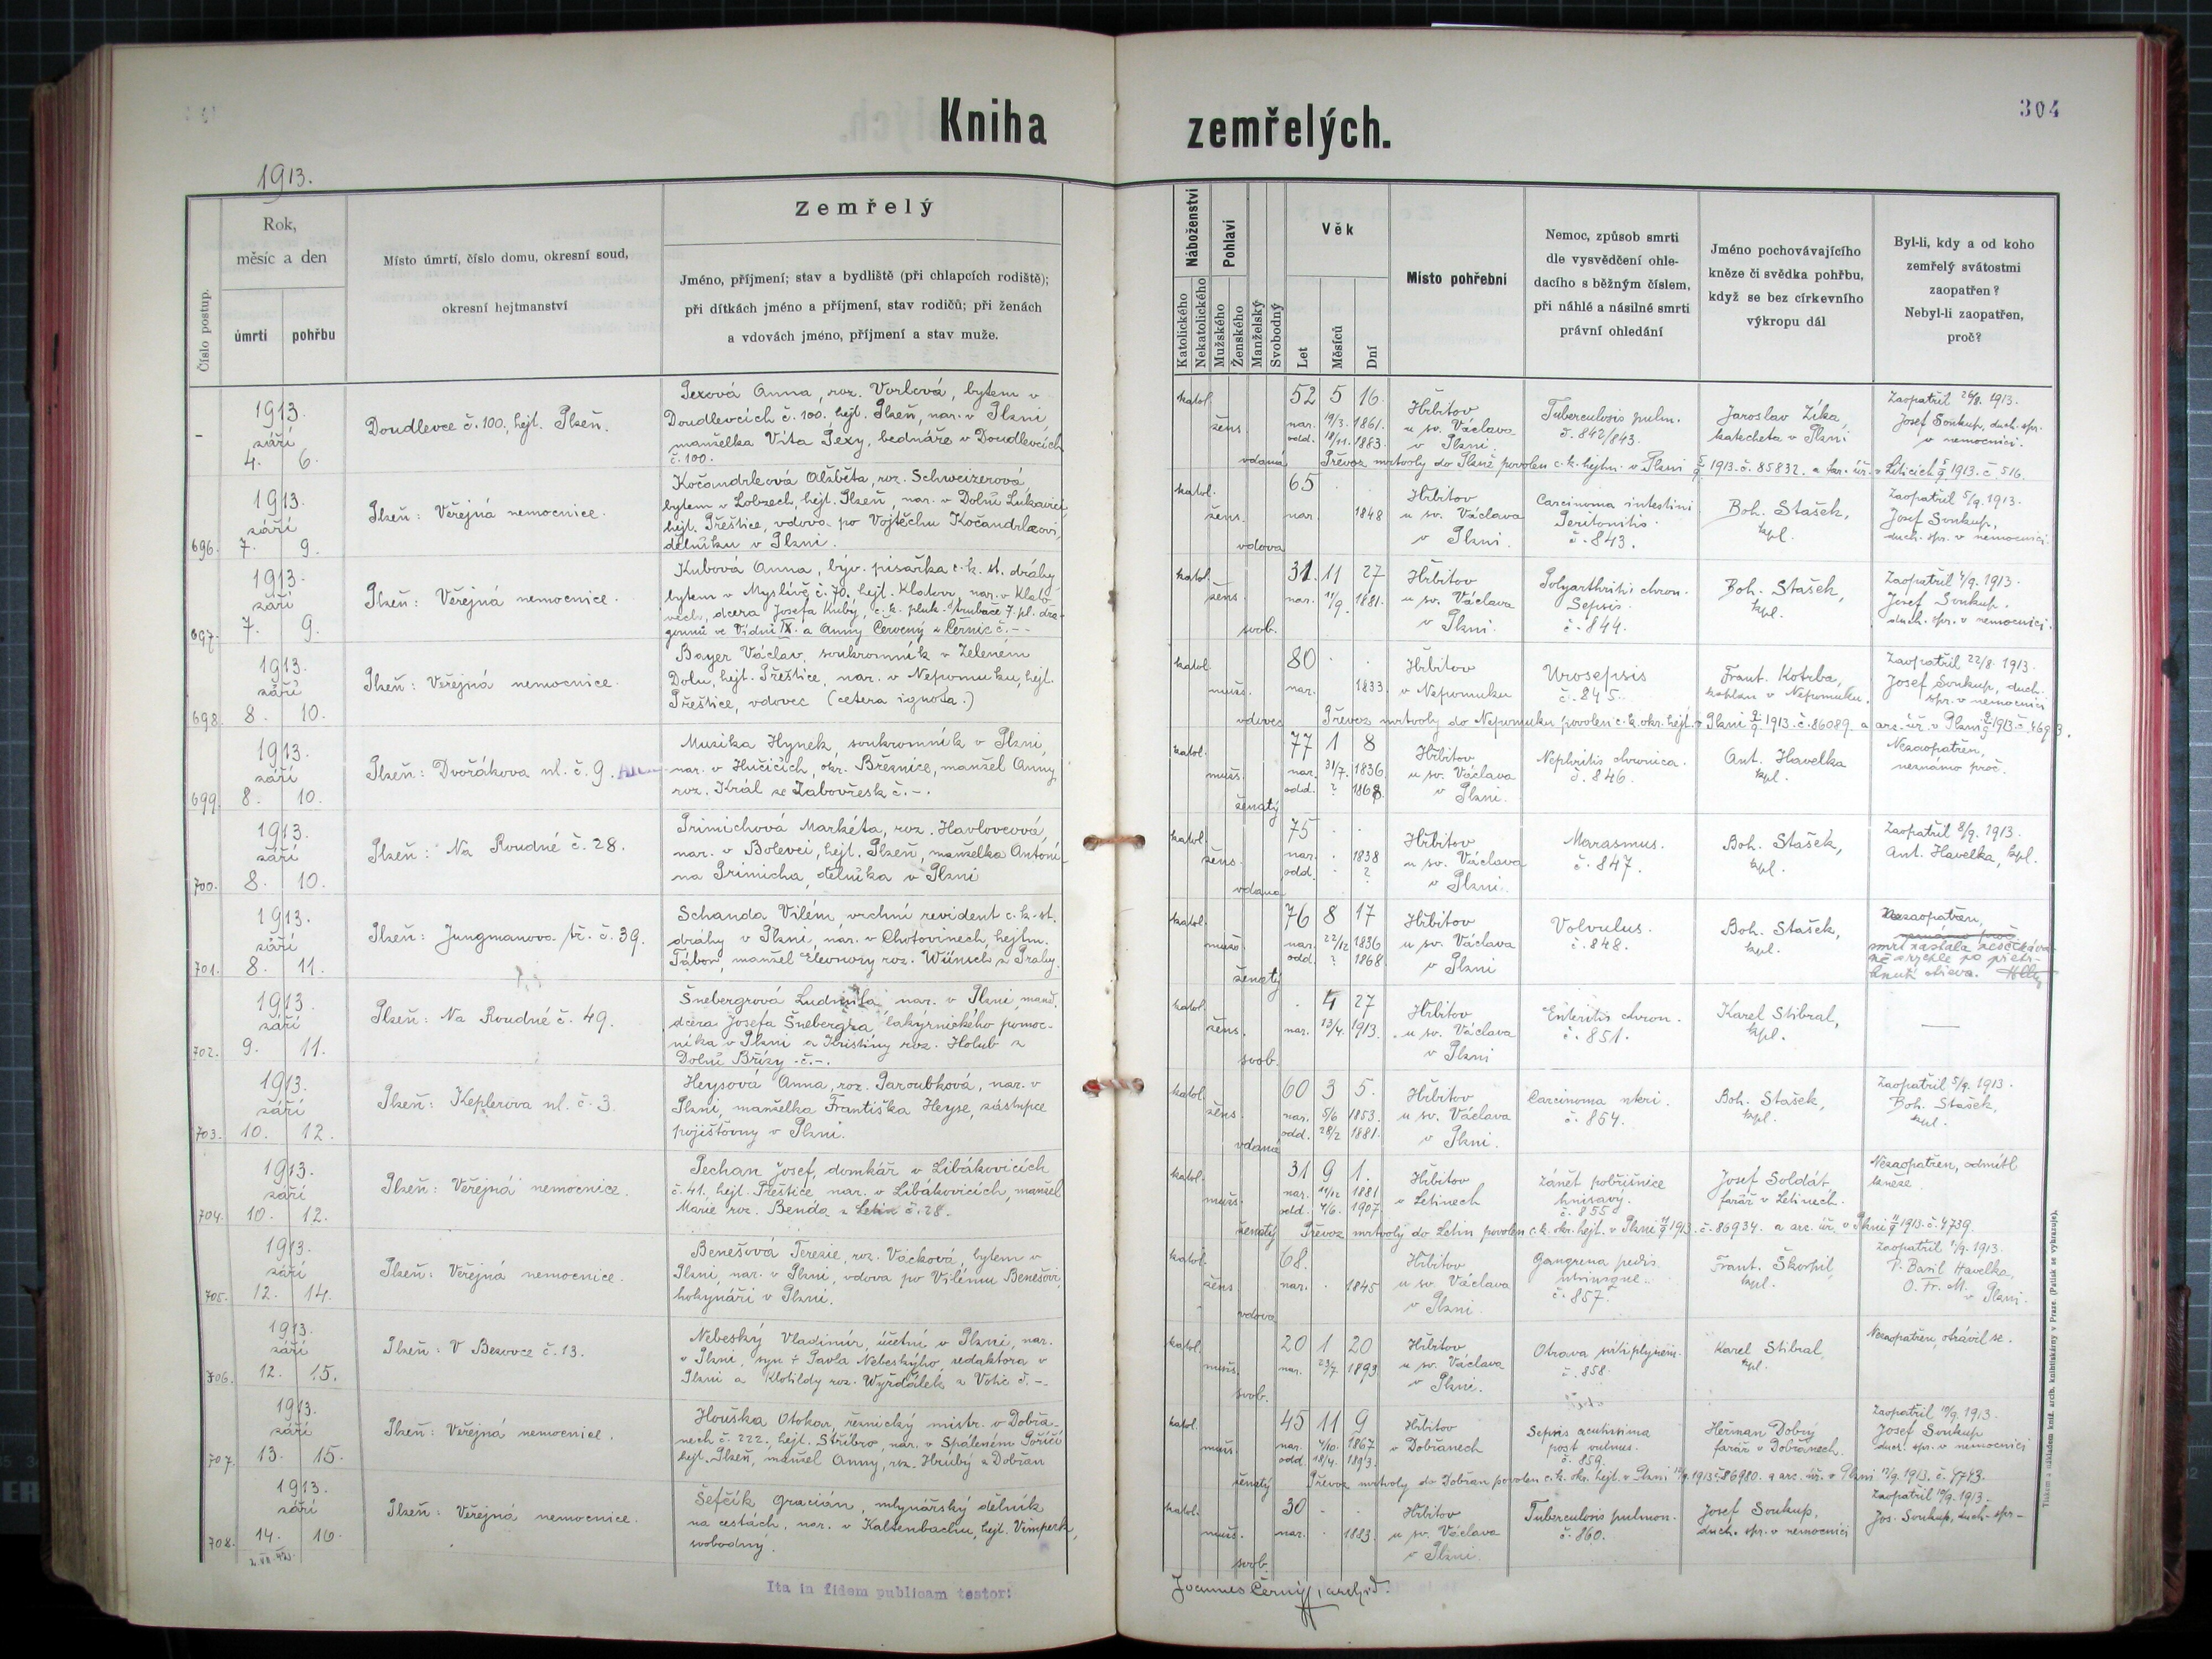 Kniha zemřelých.
304
1913.
Číslo postup.
Rok,
měsíc a den
úmrtí
pohřbu
Místo úmrtí, číslo domu, okresní soud,
okresní hejtmanství
Zemřelý
Jméno, příjmení; stav a bydliště (při chlapcích rodiště);
při dítkách jméno a příjmení, stav rodičů; při ženách
a vdovách jméno, příjmení a stav muže.
Náboženství
Katolického
Nekatolického
Pohlaví
Mužského
Ženského
Manželský
Svobodný
Věk
Let
Měsíců
Dní
Místo pohřební
Nemoc, způsob smrti
dle vysvědčení ohle-
dacího s běžným číslem,
při náhlé a násilné smrti
právní ohledání
Jméno pochovávajícího
kněze či svědka pohřbu,
když se bez církevního
výkropu dál
Byl-li, kdy a od koho
zemřelý svátostmi
zaopatřen?
Nebyl-li zaopatřen,
proč?
–
1913.
září
4. 6.
Doudlevce č. 100, hejt. Plzeň.
Pexová Anna, roz. Vorlová, bytem v
Doudlevcích č. 100. hejt. Plzeň, nar. v Plzni,
manželka Víta Pexy, bednáře v Doudlevcích
č. 100.
katol.
žens.
vdaná
52 5 16.
nar. 19/3. 1861.
odd. 18/11. 1883.
Hřbitov
u sv. Václava
v Plzni.
Tuberculosis pulm.
č. 842/843.
Jaroslav Zíka,
katecheta v Plzni
Zaopatřil 26/8. 1913.
Josef Soukup, duch. spr.
v nemocnici.
Převoz mrtvoly do Plzně povolen c. k. hejtm. v Plzni 5/9 1913. č. 85832. a far. úř. v Liticích 5/9 1913. č. 516.
696.
1913.
září
7. 9.
Plzeň: Veřejná nemocnice.
Kočandrlová Alžběta, roz. Schweizerová,
bytem v Lobzech, hejt. Plzeň, nar. v Dolní Lukavici,
hejt. Přeštice, vdova po Vojtěchu Kočandrlovi,
dělníku v Plzni.
katol.
žens.
vdova
65
nar. 1848
Hřbitov
u sv. Václava
v Plzni.
Carcinoma intestini
Peritonitis.
č. 843.
Boh. Stašek,
kpl.
Zaopatřil 5/9. 1913.
Josef Soukup,
duch. spr. v nemocnici.
697.
1913.
září
7. 9.
Plzeň: Veřejná nemocnice.
Kubová Anna, býv. písařka c. k. st. dráhy
bytem v Myslívě č. 70. hejt. Klatovy, nar. v Klato-
vech, dcera Josefa Kuby, c. k. pluk. trubače 7. pl. dra-
gounů ve Vídni IX. a Anny Červený z Černic č. –
katol.
žens.
svob.
31. 11 27
nar. 11/9. 1881.
Hřbitov
u sv. Václava
v Plzni.
Polyarthritis chron.
Sepsis.
č. 844.
Boh. Stašek,
kpl.
Josef Soukup,
duch. spr. v nemocnici.
698.
1913.
září
8. 10.
Plzeň: Veřejná nemocnice.
Bayer Václav, soukromník v Zeleném
Dolu, hejt. Přeštice, nar. v Nepomuku, hejt.
Přeštice, vdovec (cetera ignota.)
katol.
muž.
vdovec
80
nar. 1833
Hřbitov
v Nepomuku
Urosepsis
č. 845.
Frant. Kotrba,
kaplan v Nepomuku.
Zaopatřil 22/8. 1913.
Josef Soukup, duch.
spr. v nemocnici
Převoz mrtvoly do Nepomuku povolen c. k. okr. hejt. v Plzni 9/9 1913. č. 86089. a arc. úř. v Plzni 9/9 1913. č. 4693.
699.
1913.
září
8. 10.
Plzeň: Dvořákova ul. č. 9.
Muzika Hynek, soukromník v Plzni,
nar. v Hučicích, okr. Březnice, manžel Anny
roz. Král ze Zabovřesk č. –.
katol.
muž.
ženatý
77 1 8
nar. 31/7. 1836.
odd. ? 1868.
Hřbitov
u sv. Václava
v Plzni.
Nephritis chronica.
č. 846.
Ant. Havelka
kpl.
Nezaopatřen,
neznámo proč.
700.
1913.
září
8. 10.
Plzeň: Na Roudné č. 28.
Primichová Markéta, roz. Havlovcová,
nar. v Bolevci, hejt. Plzeň, manželka Antoní-
na Primicha, dělníka v Plzni
katol.
žens.
vdaná
75
nar. 1838
odd. ?
Hřbitov
u sv. Václava
v Plzni.
Marasmus.
č. 847.
Boh. Stašek,
kpl.
Zaopatřil 8/9. 1913.
Ant. Havelka, kpl.
701.
1913.
září
8. 11.
Plzeň: Jungmanova tř. č. 39.
Schanda Vilém, vrchní revident c. k. st.
dráhy v Plzni, nar. v Chotovinech, hejtm.
Tábor, manžel Eleonory roz. Wünsch z Prahy.
katol.
muž.
ženatý
76 8 17
nar. 22/12 1836
odd. ? 1868
Hřbitov
u sv. Václava
v Plzni
Volvulus.
č. 848.
Boh. Stašek,
kpl.
Nezaopatřen,
neznámo proč
smrt nastala neočekáva-
ně rychle po přetr-
hnutí střeva.
702.
1913.
září
9. 11.
Plzeň: Na Roudné č. 49.
Šnebergrová Ludmila nar. v Plzni, manž.
dcera Josefa Šnebergra, lakýrnického pomoc-
níka v Plzni a Kristiny roz. Holub z
Dolní Břízy č. –.
katol.
žens.
svob.
4 27
nar. 13/4. 1913.
Hřbitov
u sv. Václava
v Plzni
Enteritis chron.
č. 851.
Karel Stibral,
kpl.
—
703.
1913.
září
10. 12.
Plzeň: Keplerova ul. č. 3.
Heysová Anna, roz. Paroubková, nar. v
Plzni, manželka Františka Heyse, zástupce
pojišťovny v Plzni.
katol.
žens.
vdaná
60 3 5.
nar. 5/6 1853.
odd. 28/2 1881.
Hřbitov
u sv. Václava
v Plzni.
Carcinoma uteri.
č. 854.
Boh. Stašek,
kpl.
Zaopatřil 5/9. 1913.
Boh. Stašek,
kpl.
704.
1913.
září
10. 12.
Plzeň: Veřejná nemocnice.
Pechan Josef, domkář v Libákovicích
č. 41. hejt. Přeštice nar. v Libákovicích, manžel
Marie roz. Benda z Letin č. 28.
katol.
muž.
ženatý
31 9 1.
nar. 1881
odd. 4/6. 1907
Hřbitov
v Letinech
Zánět pobřišnice
hnisavý.
č. 855
Josef Soldát
farář v Letinech.
Nezaopatřen, odmítl
kněze
Převoz mrtvoly do Letin povolen c. k. okr. hejt. v Plzni 11/9 1913. č. 86934. a arc. úř. v Plzni 11/9 1913. č. 4739.
705.
1913.
září
12. 14.
Plzeň: Veřejná nemocnice.
Benešová Terezie, roz. Vácková, bytem v
Plzni, nar. v Plzni, vdova po Vilému Benešovi,
hokynáři v Plzni.
katol.
žens.
vdova
68.
nar. 1845
Hřbitov
u sv. Václava
v Plzni.
Gangrena pedis
utriusque.
č. 857.
Frant. Škorpil,
kpl.
Zaopatřil 1/9. 1913.
P. Basil Havelka,
O. Fr. M.
v Plzni.
706.
1913.
září
12. 15.
Plzeň: V Bezovce č. 13.
Nebeský Vladimír, účetní v Plzni, nar.
v Plzni, syn † Pavla Nebeskýho, redaktora v
Plzni a Klotildy roz. Wyždálek z Votic č. –.
katol.
muž.
svob.
20 1 20
nar. 23/7. 1893.
Hřbitov
u sv. Václava
v Plzni.
Otrava svítiplynem.
č. 858.
Karel Stibral,
kpl.
Nezaopatřen, otrávil se.
707.
1913.
září
13. 15.
Plzeň: Veřejná nemocnice.
Houška Otokar, řeznický mistr. v Dobřa-
nech č. 222., hejt. Stříbro, nar. v Spáleném Poříčí
hejt. Plzeň, manžel Anny, roz. Hrubý z Dobřan
katol.
muž.
ženatý
45 11 9
nar. 4/10. 1867
odd. 18/4. 1893.
Hřbitov
v Dobřanech
Sepsis acutissima
post vulnus.
č. 859.
Heřman Dobrý
farář v Dobřanech.
Zaopatřil 1913.
Josef Soukup
duch. spr. v nemocnici
Převoz mrtvoly do Dobřan povolen c. k. okr. hejt. v Plzni 1913. č. 86980. a arc. úř. v Plzni 1913. č. 4743.
708.
1913.
září
14. 16.
Plzeň: Veřejná nemocnice.
Šefčík Gracián, mlynářský dělník
na cestách, nar. v Kaltenbachu, hejt. Vimperk,
svobodný.
katol.
muž.
svob.
30
nar. 1883.
Hřbitov
u sv. Václava
v Plzni.
Tuberculosis pulmon.
č. 860.
Josef Soukup,
duch. spr. v nemocnici
Zaopatřil 1913.
Jos. Soukup, duch. spr-
Ita in fidem publicam testor:
Joannes Černý, archid.
Tiskem a nákladem kníž. arcib. knihtiskárny v Praze. (Patisk se vykazuje).